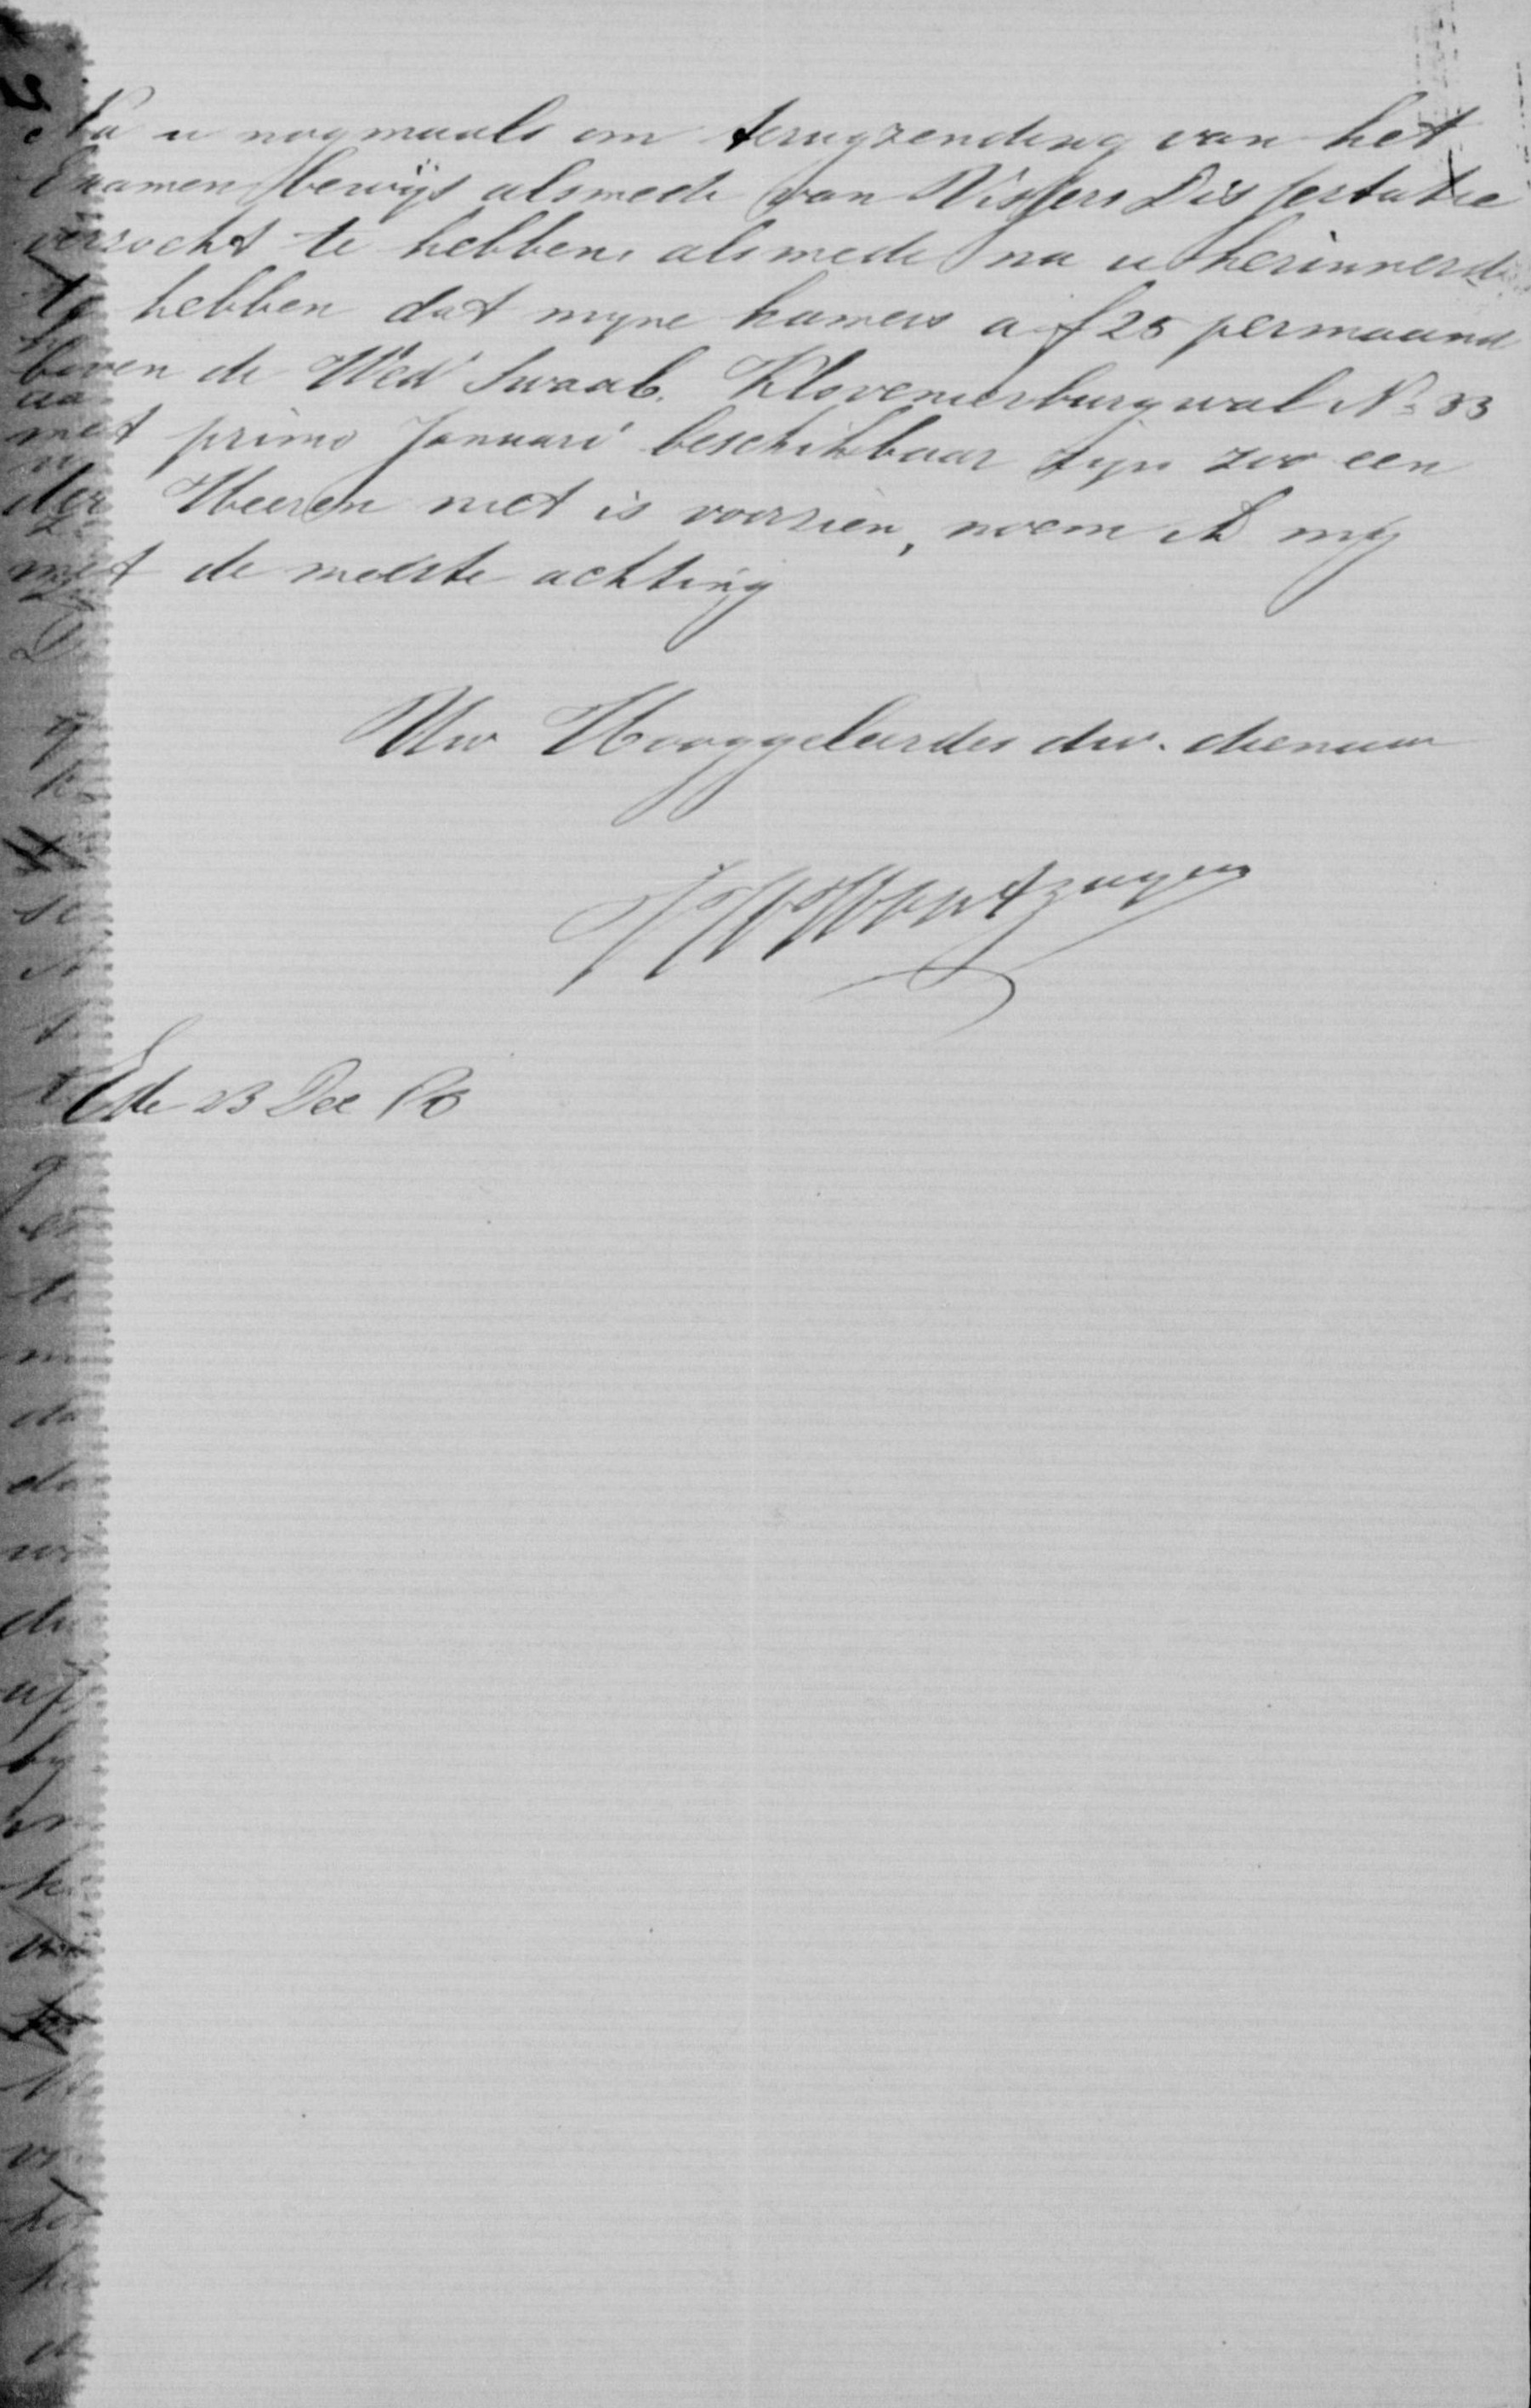 Na u nogmaals om terugzending van het
Examen bewijs alsmede van Vissers Dissertatie
verzocht te hebben, alsmede na u herinnerd
te hebben dat myne kamers a f 25 per maand
boven de Wed Swaab. Klovenierburgwal No 33
met primo Januari beschikbaar zyn zoo een
der Heeren niet is voorzien, noem ik my
met de meeste achting
Uw Hooggeleerdes dw. dienaar
Ede 23 Dec